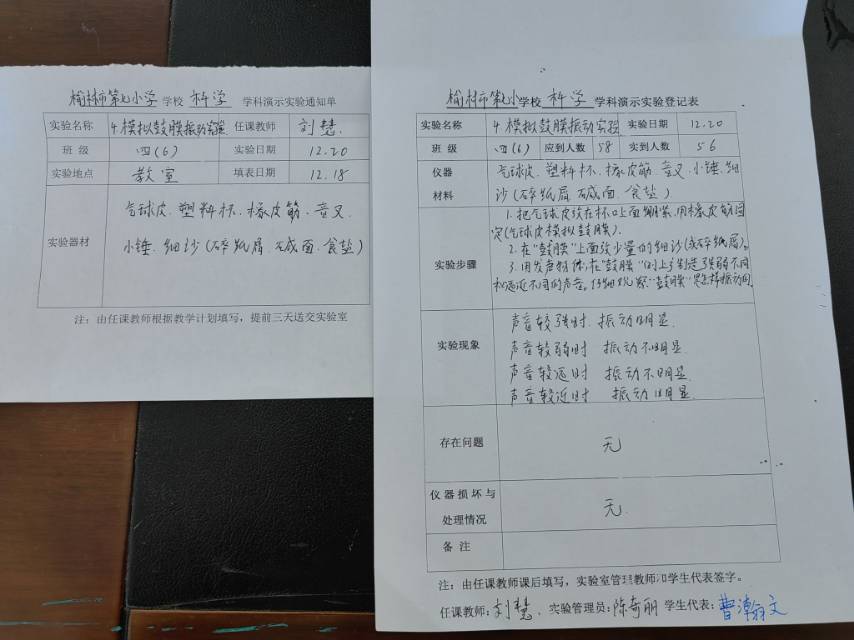 榆林市第七小学 学校 科学 学科演示实验通知单
实验名称 4.模拟鼓膜振动实验 任课教师 刘慧
班 级 四(6) 实验日期 12.20
实验地点 教室 填表日期 12.18
实验器材 气球皮、塑料杯、橡皮筋、音叉
小锤、细沙(碎纸屑、碱面、食盐)
注：由任课教师根据教学计划填写，提前三天送交实验室
榆林市第七小学校 科学 学科演示实验登记表
实验名称 4.模拟鼓膜振动实验 实验日期 12.20
班 级 四(6) 应到人数 58 实到人数 56
仪器材料 气球皮、塑料杯、橡皮筋、音叉、小锤、细
沙(碎纸屑、碱面、食盐)
实验步骤 1.把气球皮绕在杯口上面绷紧,用橡皮筋固
定(气球皮模拟鼓膜)。
2.在“鼓膜”上面放少量的细沙(或碎纸屑)。
3.用发声物体,在“鼓膜”的上方制造强弱不同
和远近不同的声音。仔细观察“鼓膜”是怎样振动的。
实验现象 声音较强时 振动明显.
声音较弱时 振动不明显.
声音较远时 振动不明显.
声音较近时 振动明显.
存在问题 无
仪器损坏与处理情况 无.
备 注
注：由任课教师课后填写，实验室管理教师和学生代表签字。
任课教师:刘慧. 实验管理员:陈奇丽 学生代表:曹瀚文